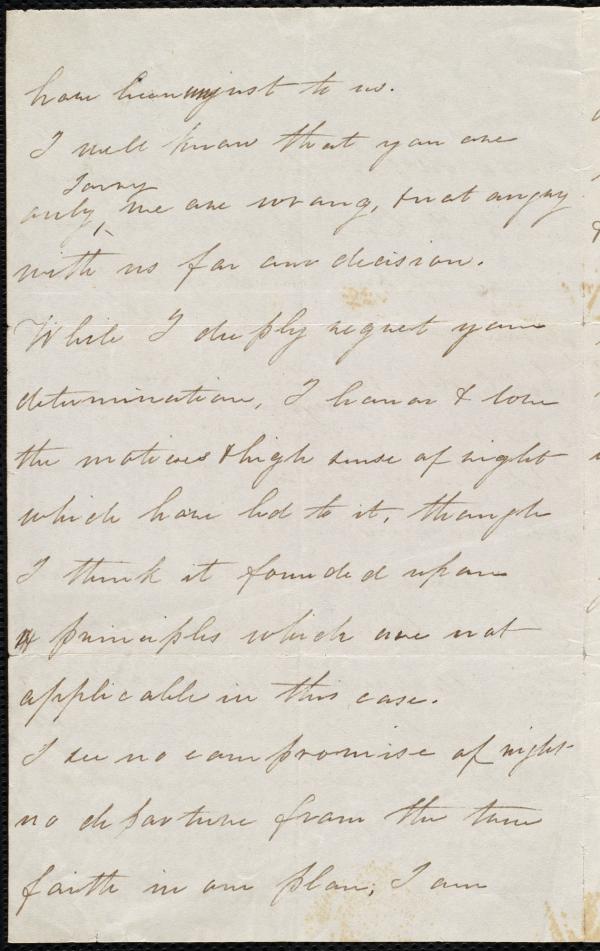 have been unjust to us.
I well know that you are
sorry
only, we are wrong, & not angry
with us for our decision.
While I deeply regret your
determination, I honor & love
the motives & high sense of right
which have led to it, though
I think it founded upon
principles which are not
applicable in this case.
I see no compromise of right
no departure from the true
faith in our plan; I am